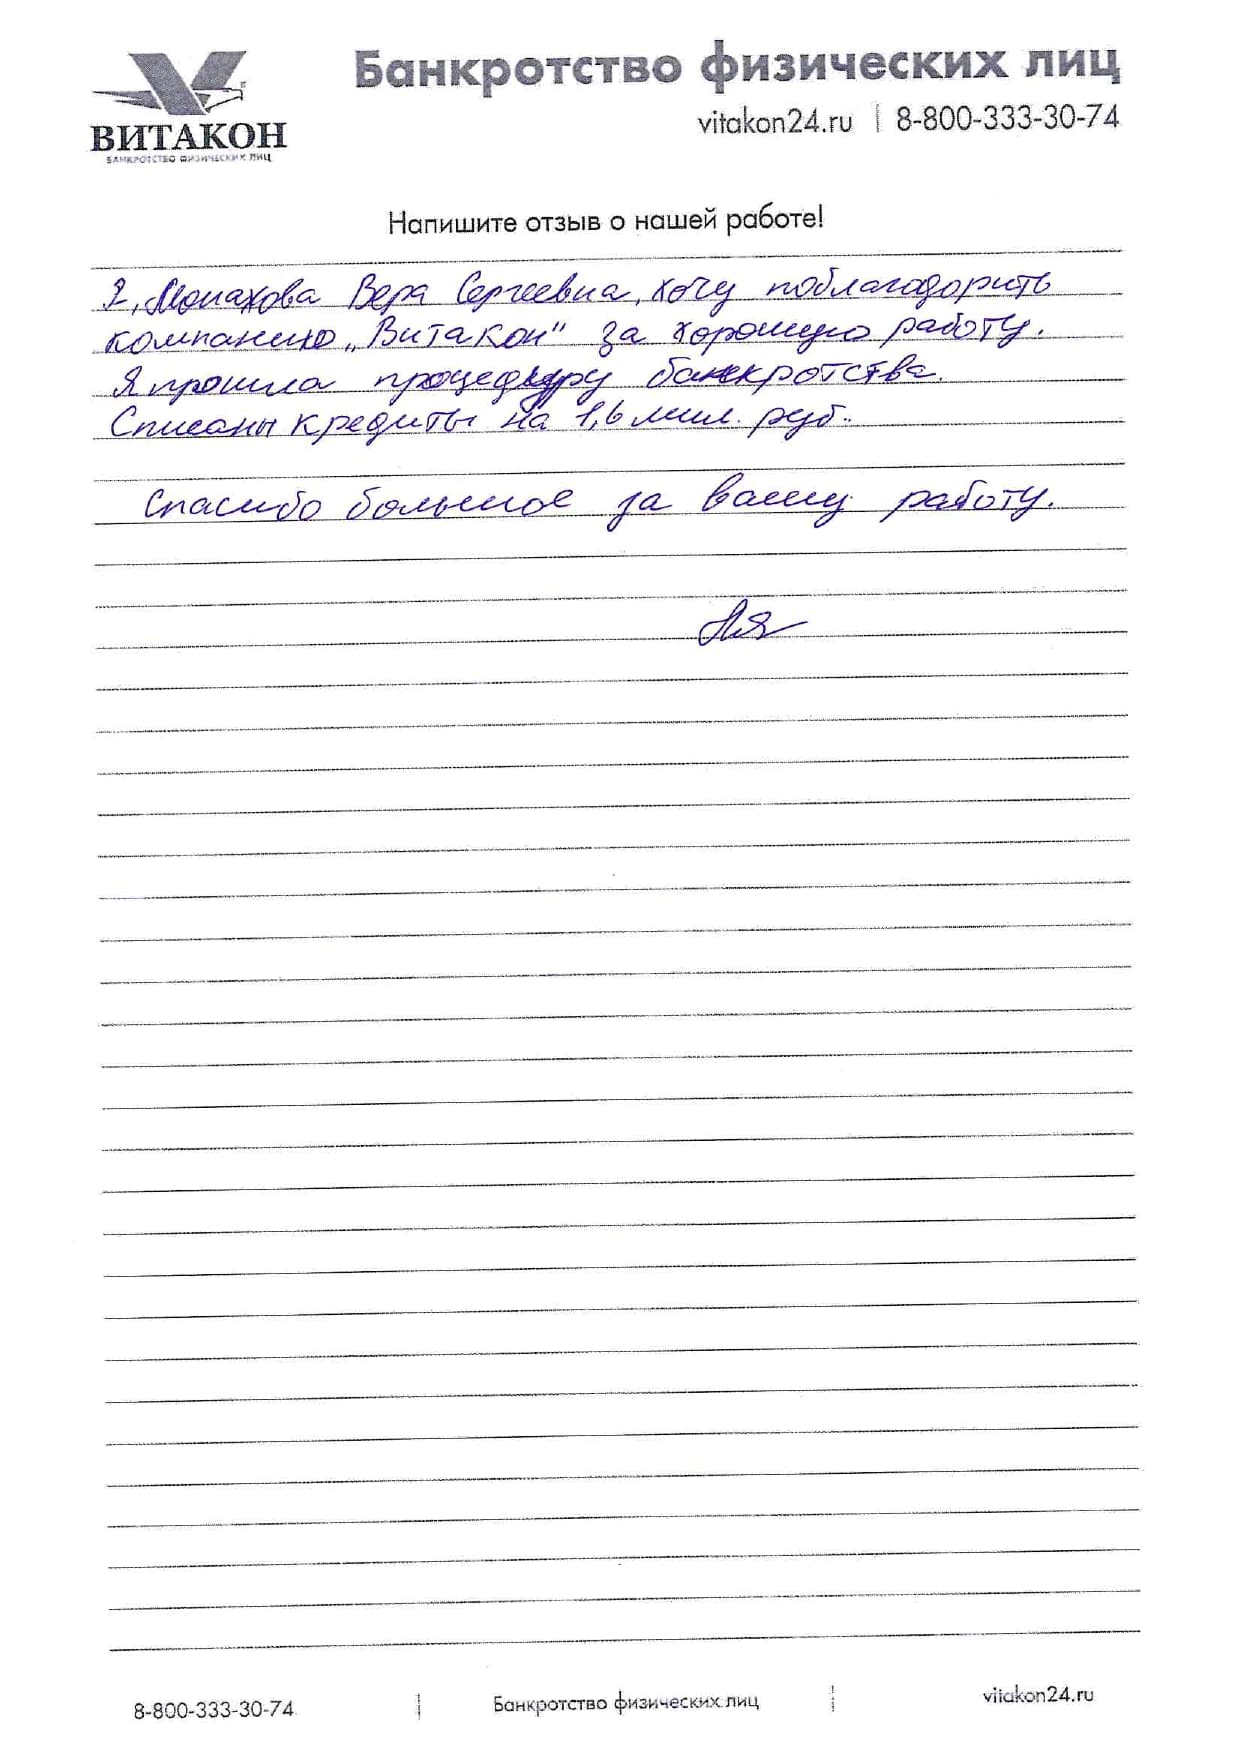 Банкротство физических лиц
vitakon24.ru | 8-800-333-30-74
ВИТАКОН
БАНКРОТСТВО ФИЗИЧЕСКИХ ЛИЦ
Напишите отзыв о нашей работе!
Я, Монахова Вера Сергеевна, хочу поблагодорить
компанию „Витакон" за хорошую работу.
Я прошла процедуру банкротства.
Списаны кредиты на 1,6 мил. руб.
Спасибо большое за вашу работу.
8-800-333-30-74 | Банкротство физических лиц | vitakon24.ru